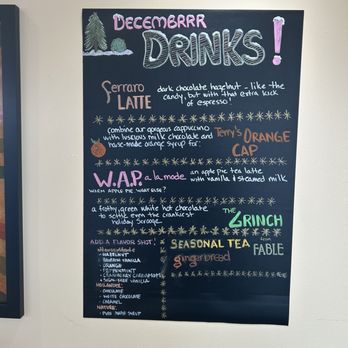 DECEMBRRR
DRINKS!
Ferraro
LATTE
dark chocolate hazelnut - like the
candy, but with that extra kick
of espresso!
combine our gorgeous cappuccino
with luscious milk chocolate and
house-made orange syrup for:
Terry's ORANGE
CAP
W.A.P. a la mode
WHEN APPLE PIE WHAT ELSE?
an apple pie tea latte
with vanilla & steamed milk
a frothy, green white hot chocolate
to settle even the crankiest
holiday Scrooge...
THE
GRINCH
ADD A FLAVOR SHOT!
- HAZELNUT
- VANILLA
- ORANGE
- PEPPERMINT
- SUGAR-FREE VANILLA
- CHOCOLATE
- WHITE CHOCOLATE
- CARAMEL
- PURE MAPLE SYRUP
SEASONAL TEA from
FABLE
gingerbread